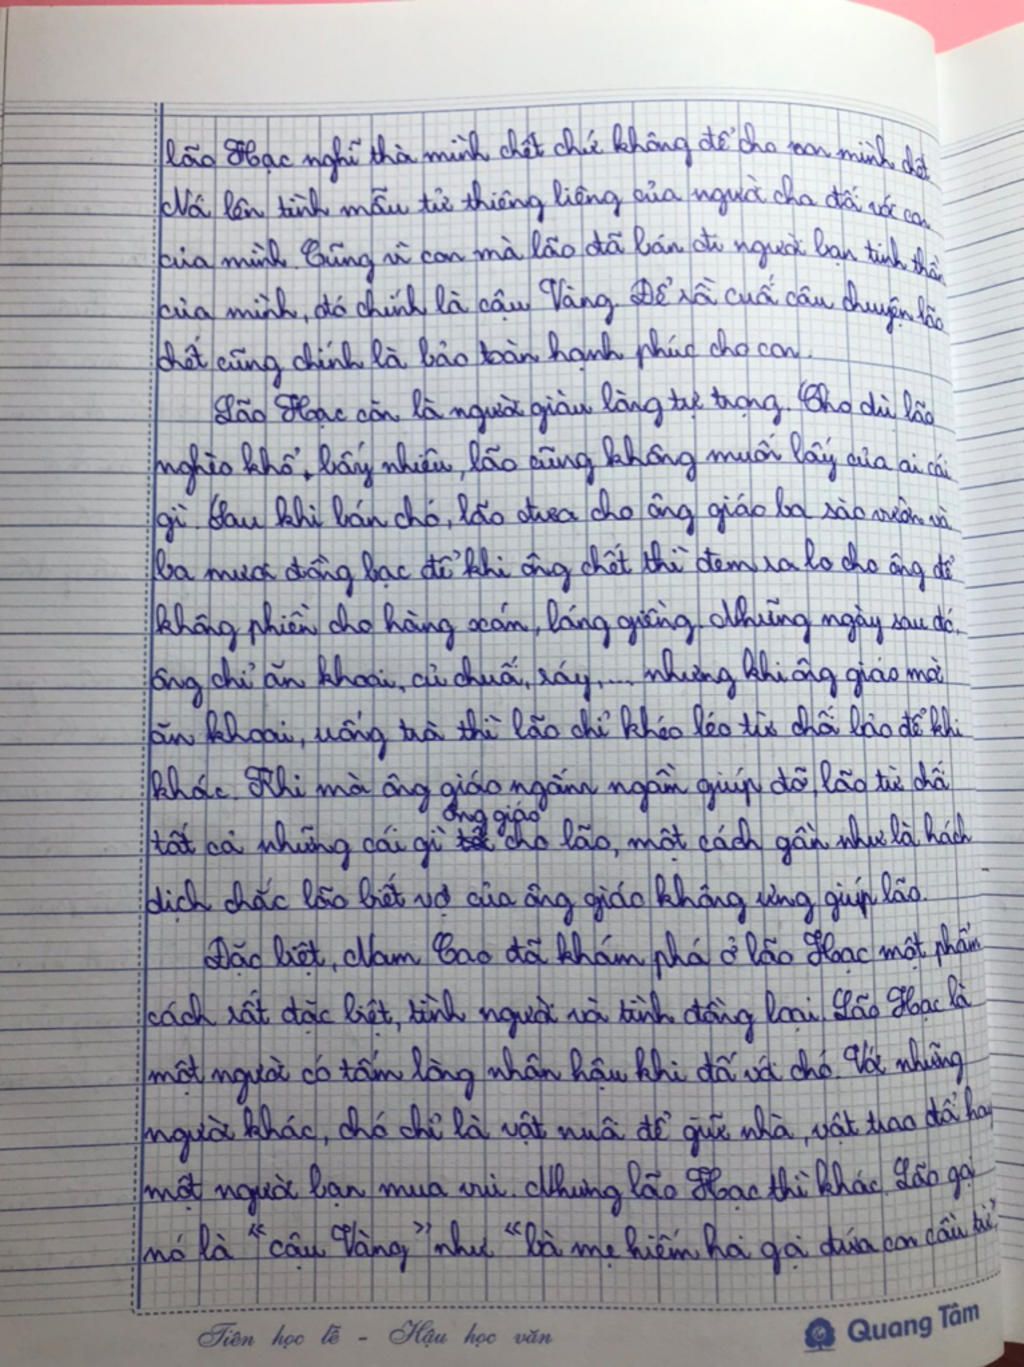 lão Hạc nghĩ thà mình chết chứ không để cho con mình chết
Nó lên tình mẫu tử thiêng liêng của người cha đối với con
của mình. Cũng vì con mà lão đã bán đi người bạn tinh thần
của mình, đó chính là cậu Vàng. Để rồi cuối câu chuyện lão
chết cũng chính là bảo toàn hạnh phúc cho con.
Lão Hạc còn là người giàu lòng tự trọng. Cho dù lão
nghèo khổ, bấy nhiêu, lão cũng không muốn lấy của ai cái
gì. Sau khi bán chó, lão đưa cho ông giáo ba sào vườn và
ba mươi đồng bạc để khi ông chết thì đem ra lo cho ông để
không phiền cho hàng xóm, láng giềng. Những ngày sau đó,
ông chỉ ăn khoai, củ chuối, ráy,... nhưng khi ông giáo mời
ăn khoai, uống trà thì lão chỉ khéo léo từ chối bảo để khi
khác. Khi mà ông giáo ngấm ngầm giúp đỡ, lão từ chối
ông giáo
tất cả những cái gì cho lão, một cách gần như là hách
dịch chắc lão biết vợ của ông giáo không ưng giúp lão.
Đặc biệt, Nam Cao đã khám phá ở lão Hạc một phẩm
cách rất đặc biệt, tình người và tình đồng loại. Lão Hạc là
một người có tấm lòng nhân hậu khi đối với chó. Với những
người khác, chó chỉ là vật nuôi để giữ nhà, vật trao đổi hay
một người bạn mua vui. Nhưng lão Hạc thì khác. Lão gọi
nó là "cậu Vàng" như "bà mẹ hiếm hoi gọi đứa con cầu tự"
Tiên học lễ - Hậu học văn
Quang Tâm